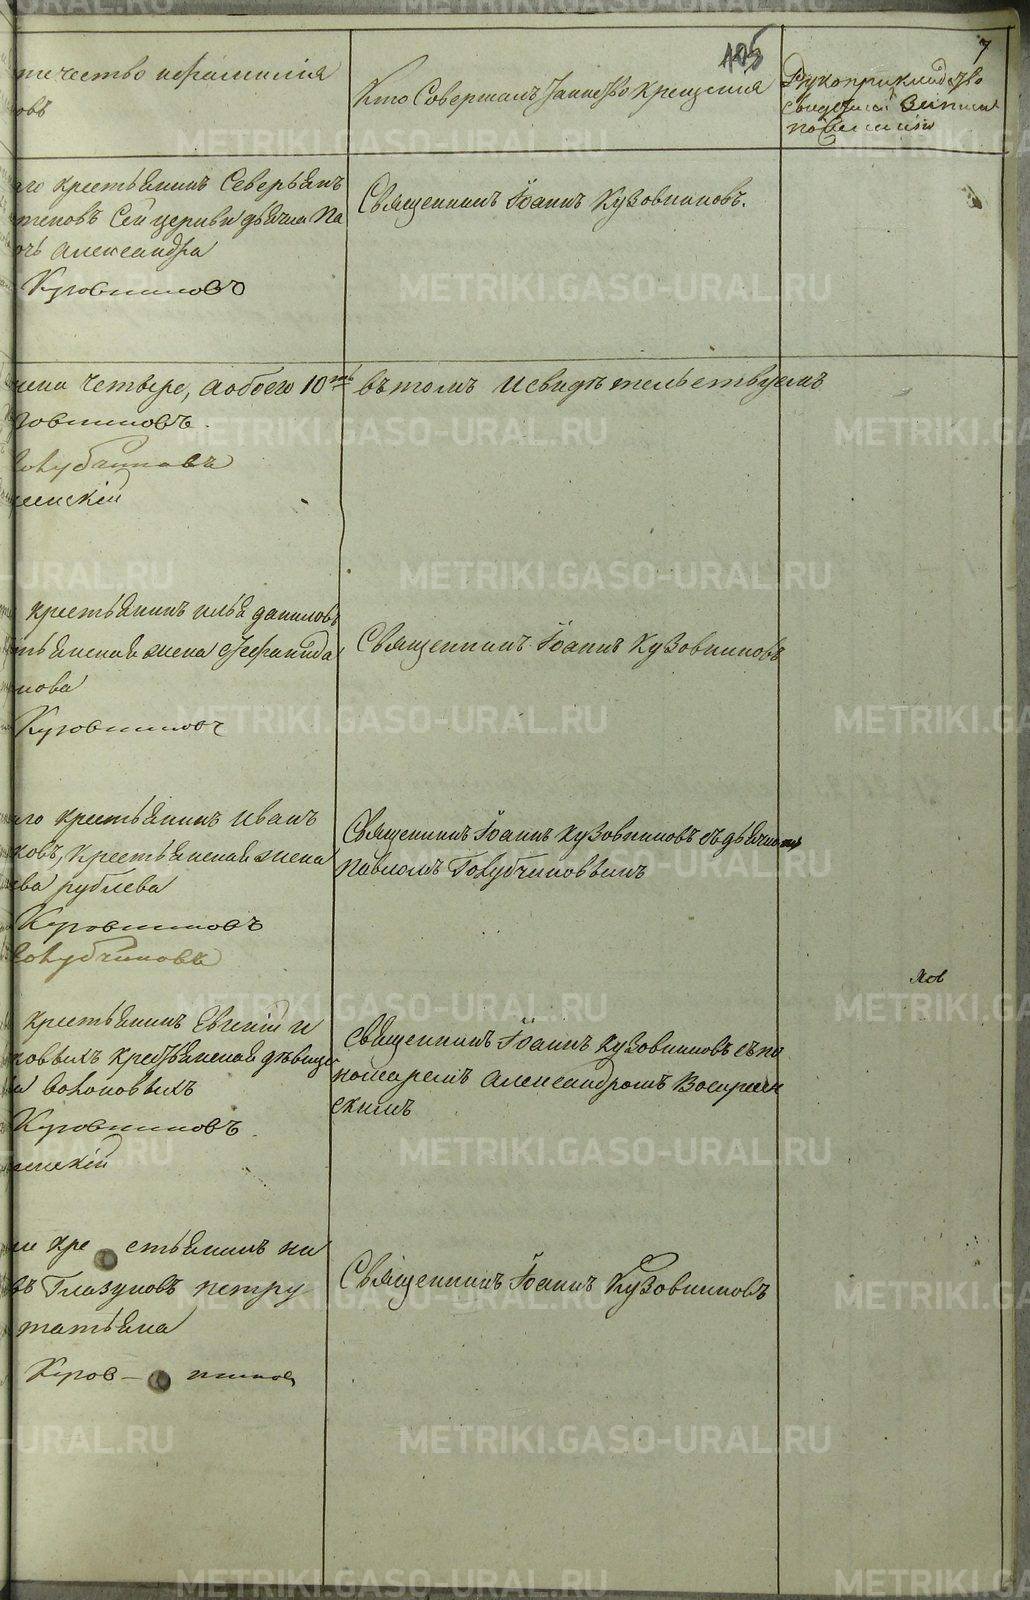 105
7
течество ифамилія
овъ
Кто Совершалъ Таинство крещенія
Рукоприкладство
Свидетелей записи
по желанію
го крестьянинъ Северьянъ
теновъ Сей церкви дьячка Па
очь александра
Кузовниковъ
Священникъ Іоаннъ Кузовниковъ.
четверо, аобоего 10ть
въ томъ и свидѣтельствуемъ
зовниковъ.
Голубчиковъ
енскій
крестьянинъ илья даниловъ
тьянская жена
нова
Кузовниковъ
Священникъ Іоаннъ Кузовниковъ
го крестьянинъ Иванъ
ковъ, крестьянская жена
ева рублева
Кузовниковъ
Голубчиковъ
Священникъ Іоаннъ Кузовниковъ съ дьячкомъ
Павломъ Голубчиковымъ
крестьянинъ Евгеній и
ковыхъ крестьянская дѣвица
Кузовниковъ
енскій
священникъ Іоаннъ Кузовниковъ съ по
номаремъ александромъ Воскресен
скимъ
кре стьянинъ ни
въ Глазуновъ петру
татьяна
Кузов- никовъ
Священникъ Іоаннъ Кузовниковъ
METRIKI.GASO-URAL.RU